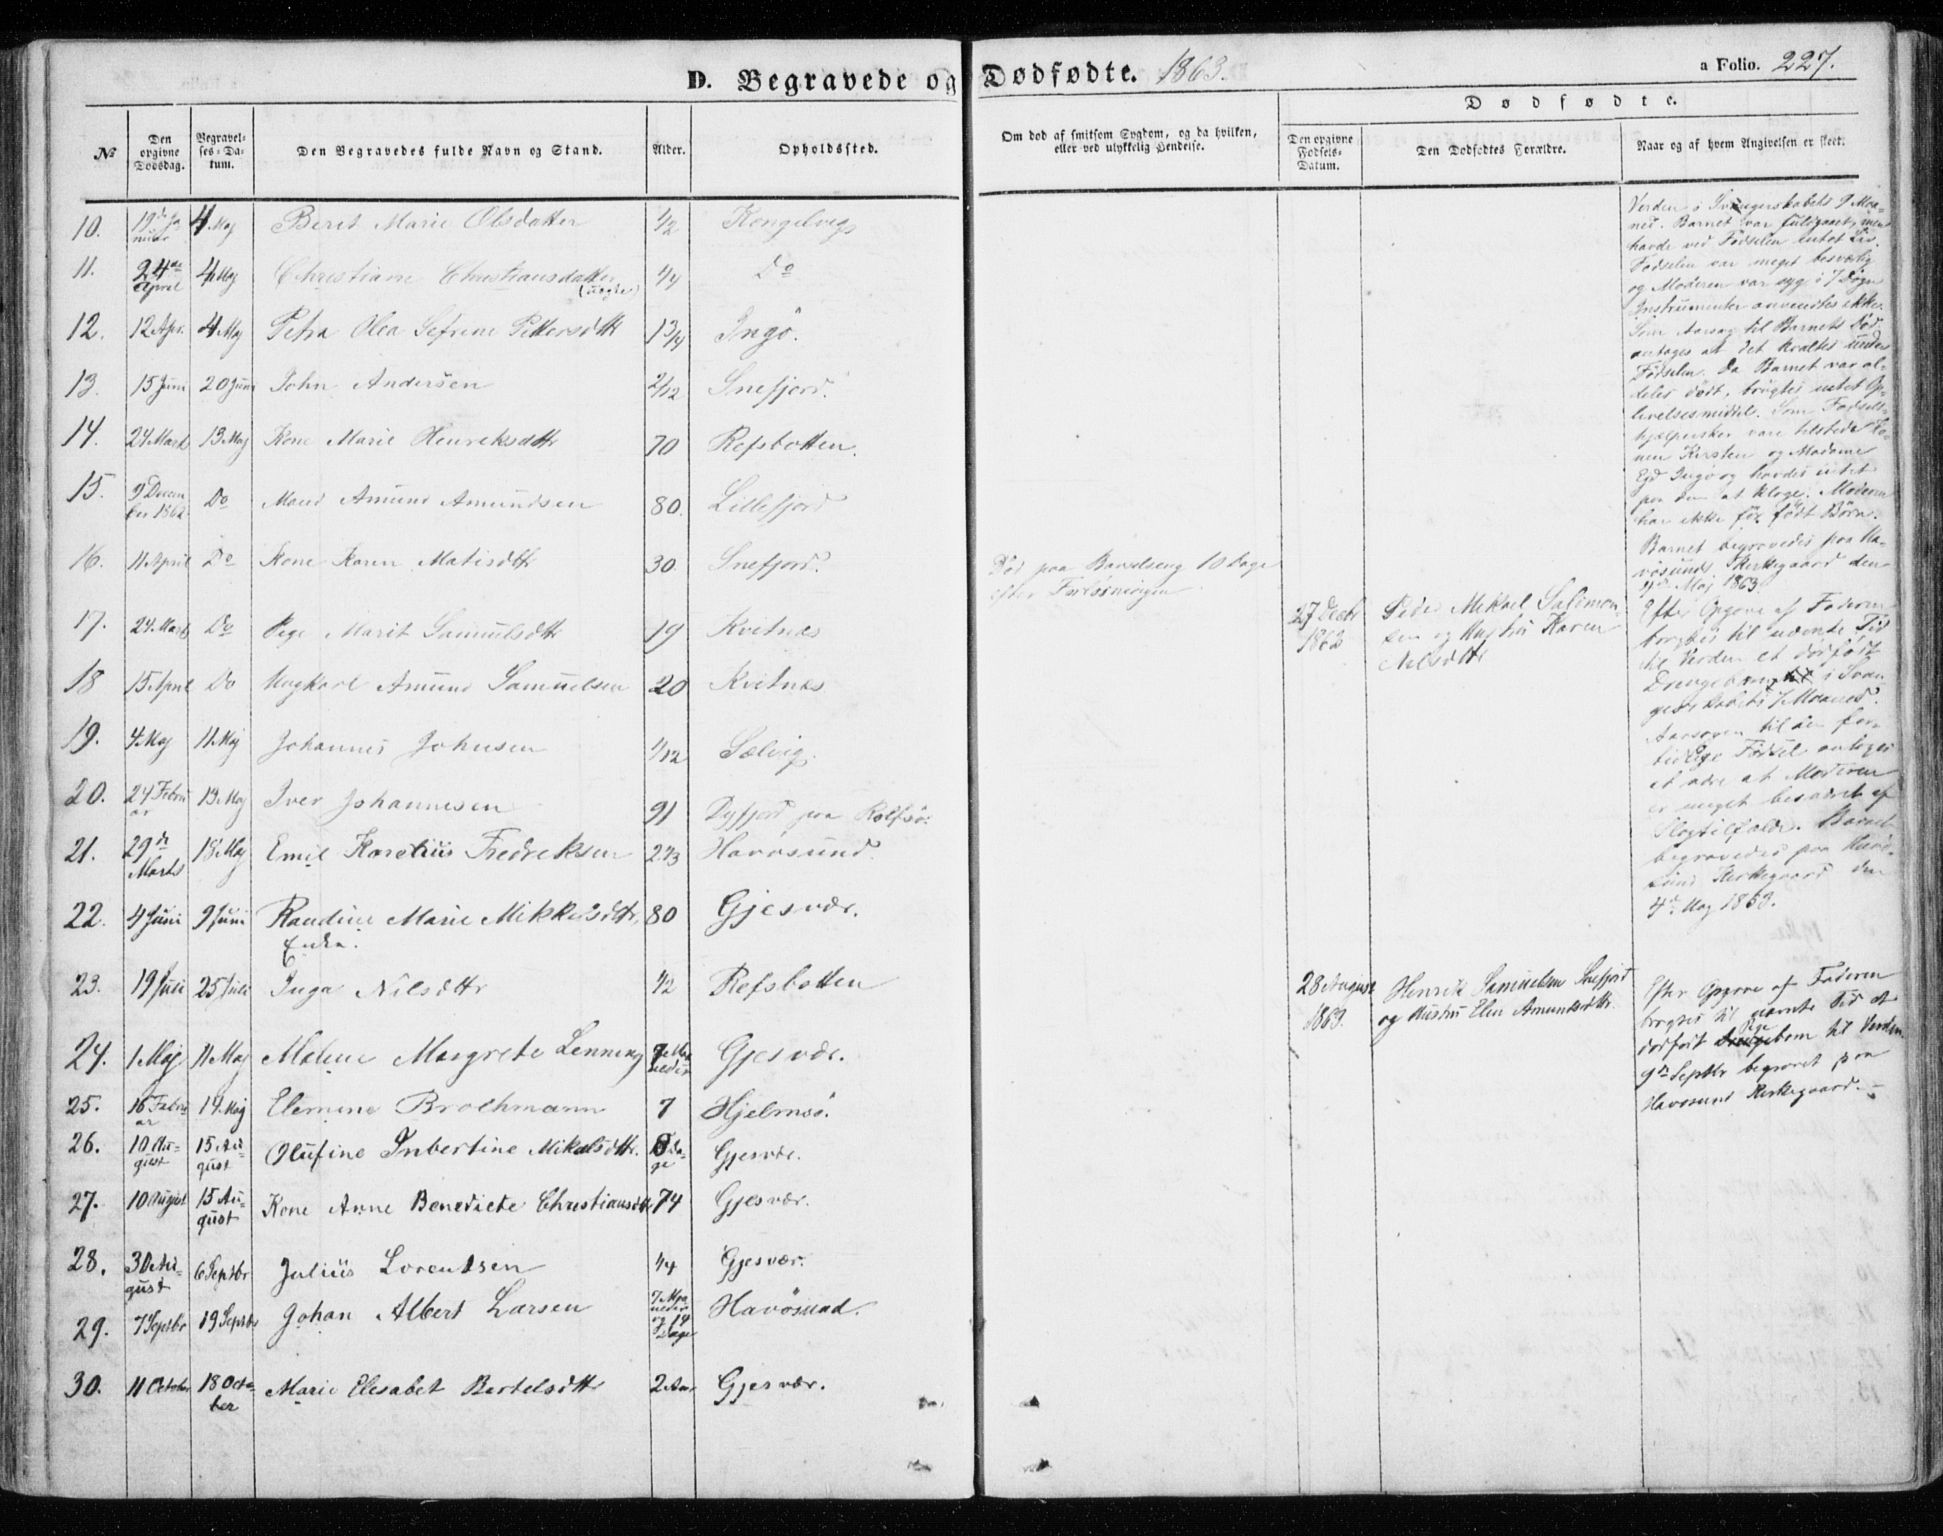 D. Begravede og Dødfødte. 1863.
a Folio. 227.
№
Den opgivne Dødsdag.
Begravelses-Datum.
Den Begravedes fulde Navn og Stand.
Alder.
Opholdssted.
Om død af smitsom Sygdom, og da hvilken, eller ved ulykkelig Hendelse.
Dødfødte.
Den opgivne Fødsels-Datum.
Den Dødfødtes Forældre.
Naar og af hvem Angivelsen er skeet.
10. 19de Januar 4 Maj Berit Marie Olsdatter 1/2 Kongelvig
11. 24de April 4 Maj Christiane Christiansdatter (uægte) 1/4 Do
12. 12 Apr. 4 Maj Petra Olea Sefrine Pettersdttr 1 3/4 Ingö.
13. 15 Juni 20 Juni John Andersen 2/12 Snefjord.
14. 24 Marts 13 Maj Kone Marie Henriksdttr 70 Refsbotten.
15. 9 December 1862 Do Mand Amund Amundsen 80. Lillefjord
16. 11 April Do Kone Karen Matisdttr 30. Snefjord. Död paa Barselseng 10 Dage
efter Forlösningen
17. 24 Marts Do Pige Marit Samuelsdttr 19 Kvitnæs
18 15 April Do Ungkarl Amund Samuelsen 20 Kvitnæs
19. 4 Maj 11 Maj Johannes Johnsen 1/12 Sælvig.
20. 24 Februar 13 Maj Iver Johannesen 91 Dyfjord paa Rolfsö.
21. 29de Marts 18 Maj Emil Karelius Fredreksen 2 2/3 Havösund.
22. 4 Juni 9 Juni Randine Marie Mikkelsdttr, 80 Gjesvær.
Enke.
23. 19 Juli 25 Juli Inga Nilsdttr 1/2 Refsbotten
24. 1 Maj 11 Maj Malene Margrete Lenning Maaneder Gjesvær.
25. 16 Februar 14 Maj Elemine Brochmann 7 Hjelmsö.
26. 10 August 15 August Olufine Inbertine Mikalsdttr. 8 Dage Gjesvær.
27. 10 August 15 August Kone Anne Benedicte Christiansdttr 74 Gjesvær.
28. 30 August 6 Septbr Julius Lorentsen 1/4 Gjesvær.
29. 7 Septbr 19 Septbr Johan Albert Larsen 7 Maaneder og 14 Dage Havösund.
30. 11 October 18 October Marie Elesabet Bertelsdttr 2 Aar Gjesvær.
Verden i Svangerskabets 9 Maa-
ned. Barnet var fuldbaaret, men
havde ved Fødselen intet Liv.
Fødselen var meget besværlig
og Moderen var syg i 7 Døgn
Instrumenter anvendtes ikke.
Som Aarsag til Barnets Død
antages at det kvaltes under
Fødselen. Da Barnet var al-
deles dødt, brugtes intet Op-
livelsesmiddel. Som Fødsels-
hjælpersker vare tilstede Ko-
nen Kirsten og Madame
Ingö og havdes intet
paa dem at klage. Moderen
har ikke før født Børn.
Barnet begravedes paa Ha-
vösunds Kirkegaard den
4de Maj 1863.
27 Decbr 1862
Peder Mikael Salomon-
sen og Hustru Karen
Nilsdttr
Efter Opgave af Faderen
bragtes til nævnte Tid
til Verden et dødfødt
Drengebarn i Svan-
gerskabets 7 Maaned.
Aarsagen til den for-
tidlige Fødsel antages
at være at Moderen
er meget besværet af
Slagtilfælde. Barnet
begravedes paa Havö-
sund Kirkegaard den
4de Maj 1863.
28 August 1863.
Henrik Samuelsen Snefjord
og Hustru Elen Amundsdttr.
Efter Opgave af Faderen
bragtes til nævnte Tid et
dødfødt Pigebarn til Verden.
9de Septbr begravet paa
Havösund Kirkegaard.